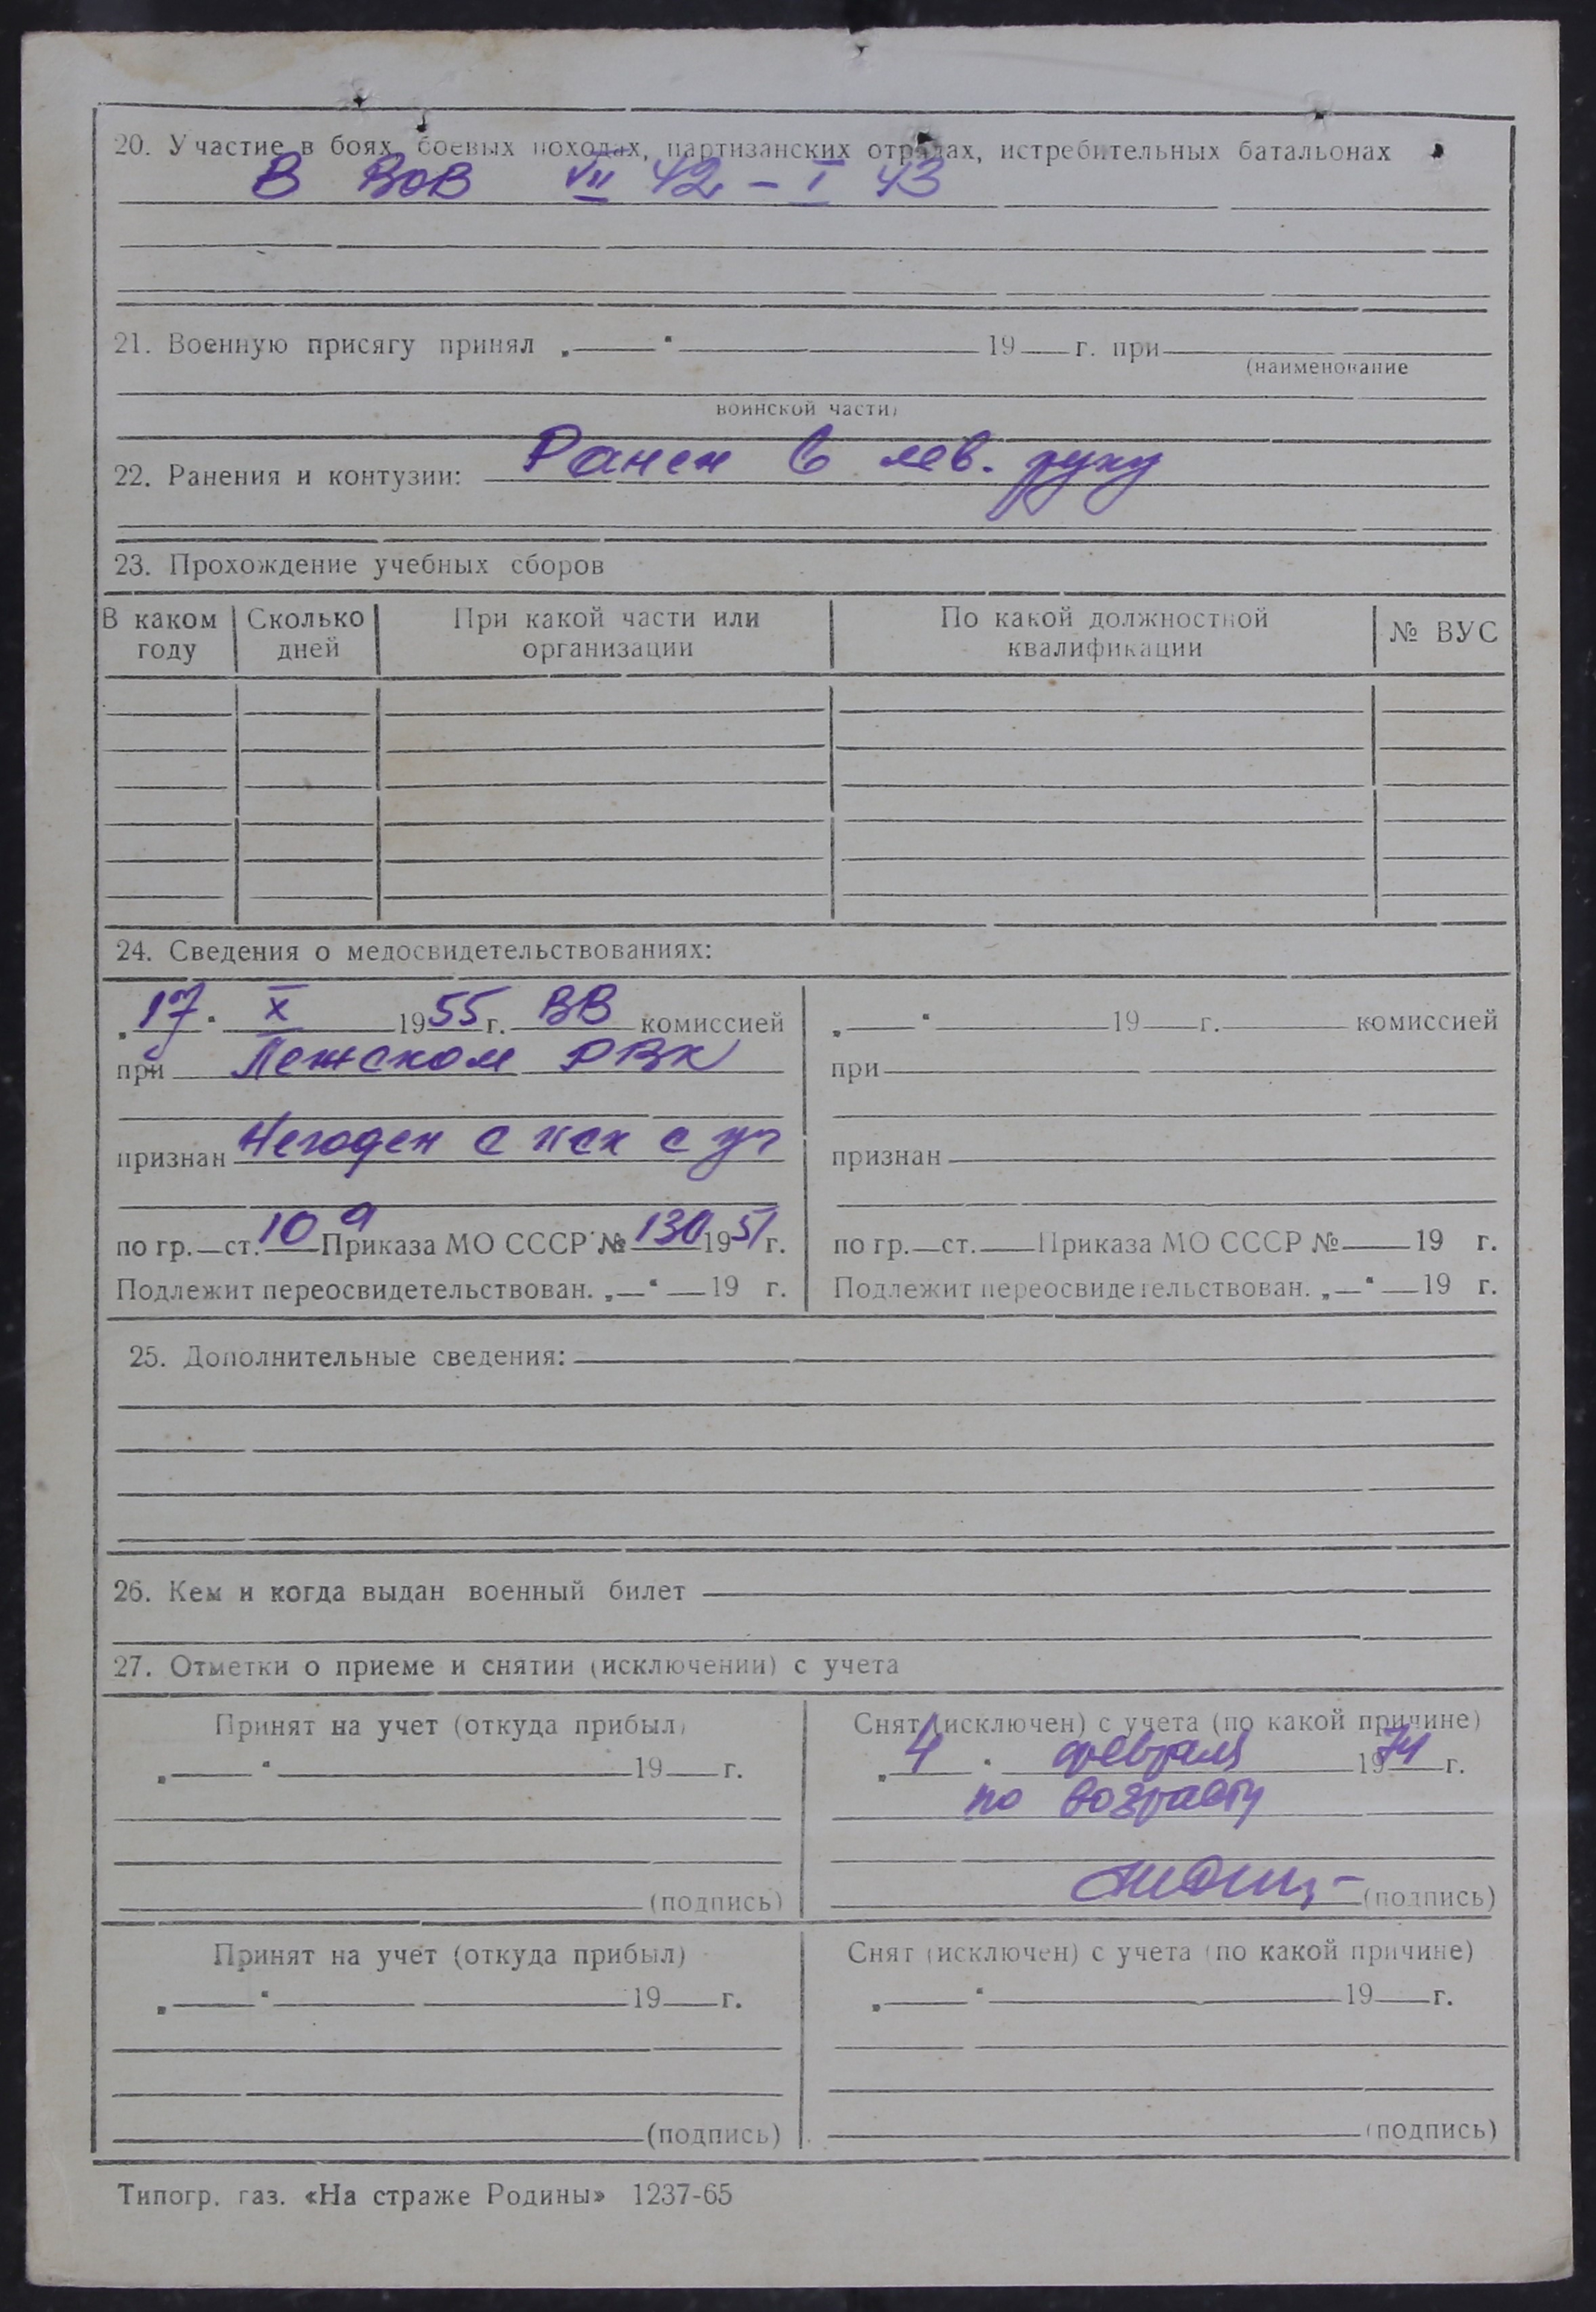 20. Участие в боях, боевых походах, партизанских отрядах, истребительных батальонах
В ВОВ VII 42 – I 43
21. Военную присягу принял „ “ 19 г. при
(наименование
воинской части)
22. Ранения и контузии: Ранен в лев. руку
23. Прохождение учебных сборов
В каком году
Сколько дней
При какой части или организации
По какой должностной квалификации
№ ВУС
24. Сведения о медосвидетельствованиях:
„17“ X 1955 г. ВВ комиссией
при Лежском РВК
признан Негоден с иск с уч
по гр. ст. 10 а Приказа МО СССР № 130 1951 г.
Подлежит переосвидетельствован. „ “ 19 г.
„ “ 19 г. комиссией
при
признан
по гр. ст. Приказа МО СССР № 19 г.
Подлежит переосвидетельствован. „ “ 19 г.
25. Дополнительные сведения:
26. Кем и когда выдан военный билет
27. Отметки о приеме и снятии (исключении) с учета
Принят на учет (откуда прибыл)
„ “ 19 г.
(подпись)
Снят (исключен) с учета (по какой причине)
„4“ февраля 1974 г.
по возрасту
(подпись)
Принят на учет (откуда прибыл)
„ “ 19 г.
(подпись)
Снят (исключен) с учета (по какой причине)
„ “ 19 г.
(подпись)
Типогр. газ. «На страже Родины» 1237-65